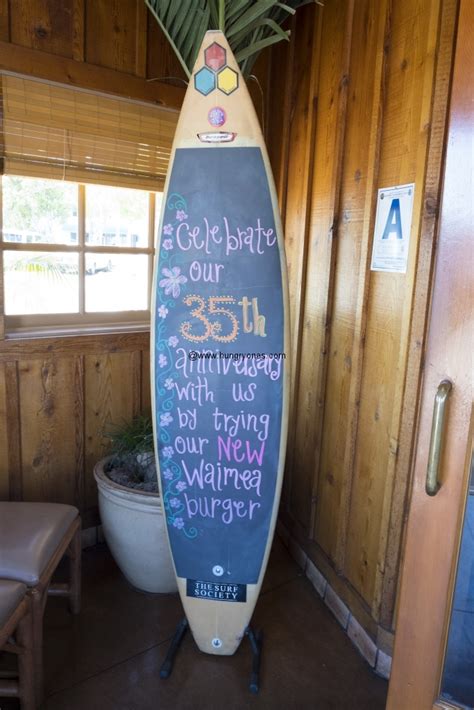 Celebrate
our
35th
anniversary
@www.hungryones.com
with us
by trying
our NEW
Waimea
burger
THE SURF
SOCIETY
A